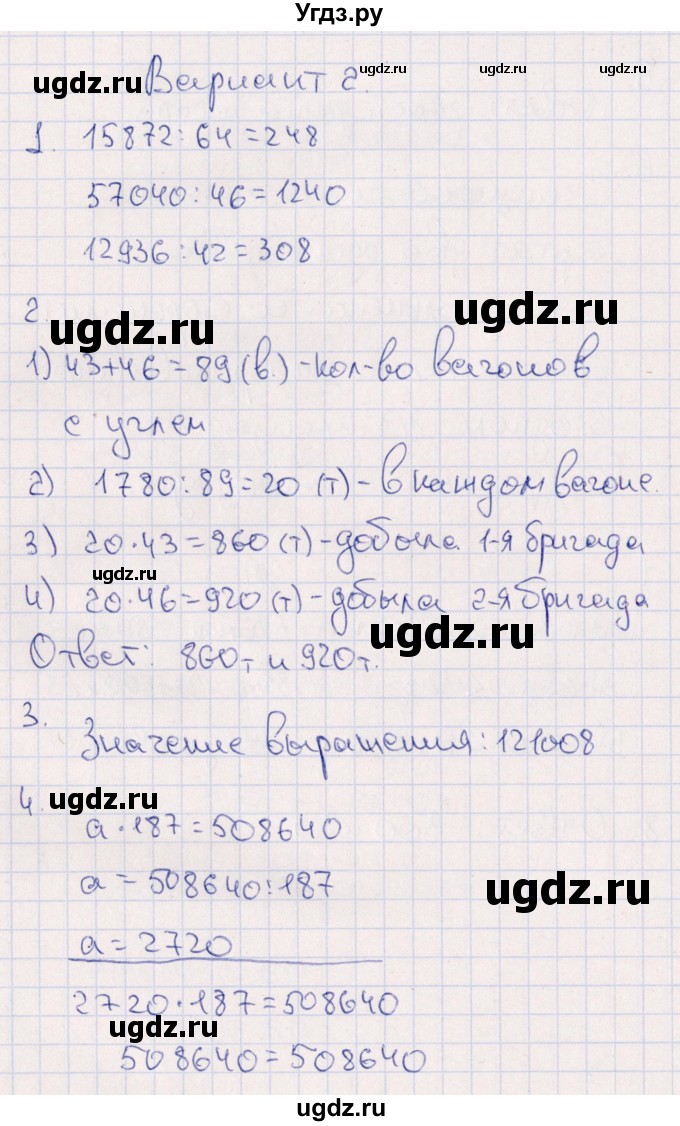 Угдз.ру
Вариант 2.
ugdz.ru
ugdz.ru
ugdz.ru
1. 15872 : 64 = 248
57040 : 46 = 1240
12936 : 42 = 308
ugdz.ru
2.
ugdz.ru
1) 43+46 = 89 (в.) - кол-во вагонов
с углем
2) 1780 : 89 = 20 (т) - в каждом вагоне.
3) 20·43 = 860 (т) - добыла 1-я бригада
ugdz.ru
4) 20·46 = 920 (т) - добыла 2-я бригада
ugdz.ru
Ответ: 860т и 920т.
3. Значение выражения: 121008
ugdz.ru
4. а·187 = 508640
а = 508640 : 187
ugdz.ru
а = 2720
2720·187 = 508640
ugdz.ru
508640 = 508640
ugdz.ru